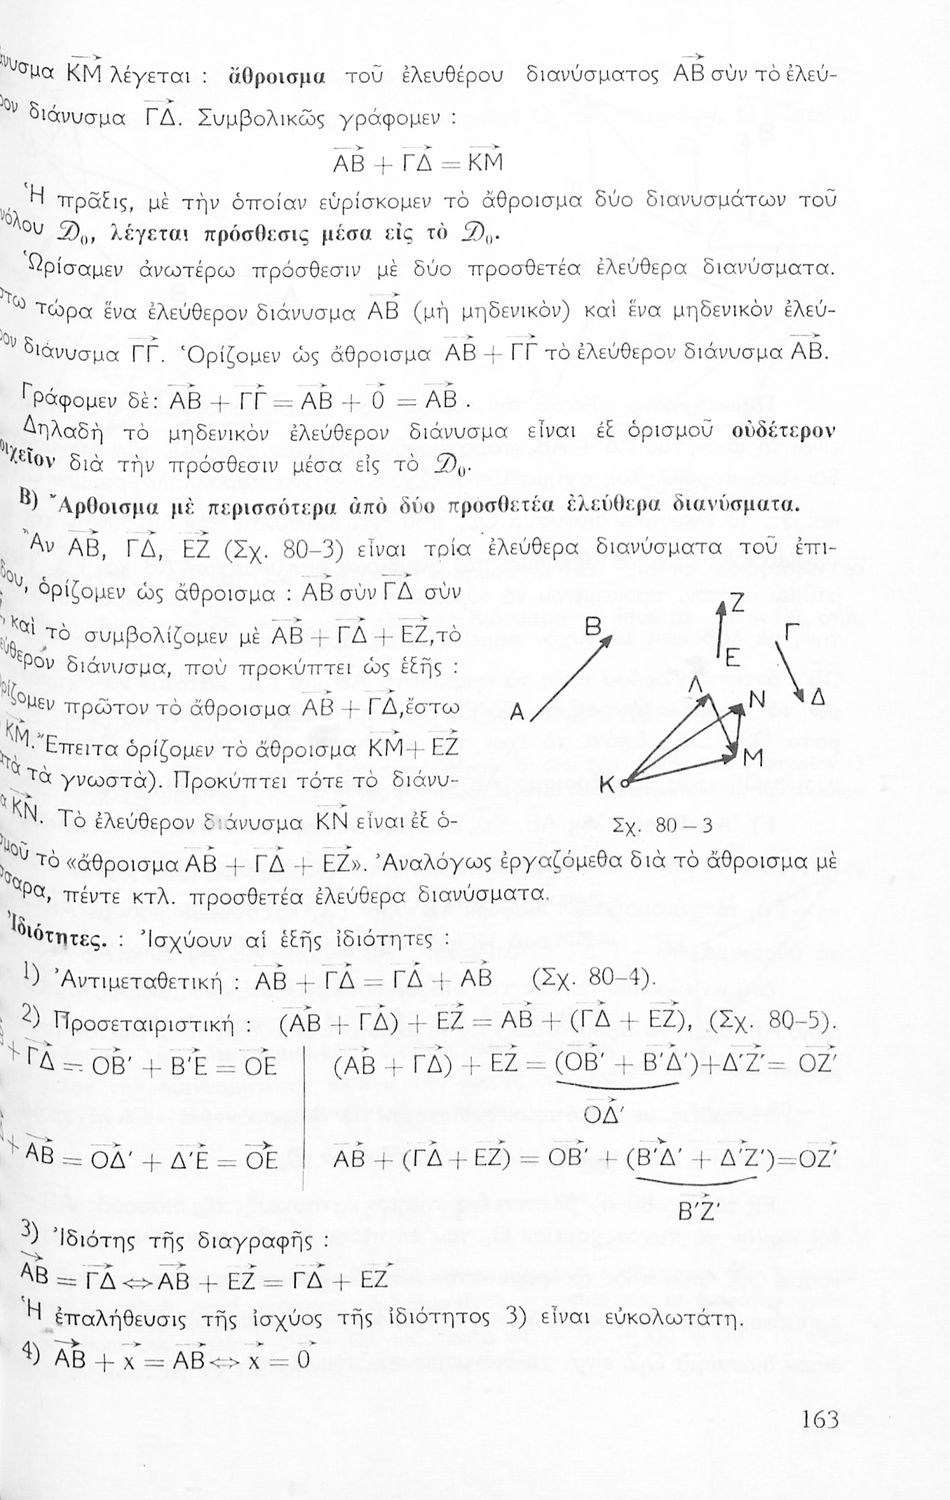 ΚΜ λέγεται : ἄθροισμα τοῦ ἐλευθέρου διανύσματος ΑΒ σὺν τὸ ἐλεύ-
διάνυσμα ΓΔ. Συμβολικῶς γράφομεν :
ΑΒ + ΓΔ = ΚΜ
Ἡ πρᾶξις, μὲ τὴν ὁποίαν εὑρίσκομεν τὸ ἄθροισμα δύο διανυσμάτων τοῦ
𝒟₀, λέγεται πρόσθεσις μέσα εἰς τὸ 𝒟₀.
Ὡρίσαμεν ἀνωτέρω πρόσθεσιν μὲ δύο προσθετέα ἐλεύθερα διανύσματα.
τώρα ἕνα ἐλεύθερον διάνυσμα ΑΒ (μὴ μηδενικὸν) καὶ ἕνα μηδενικὸν ἐλεύ-
διάνυσμα ΓΓ. Ὁρίζομεν ὡς ἄθροισμα ΑΒ + ΓΓ τὸ ἐλεύθερον διάνυσμα ΑΒ.
Γράφομεν δὲ: ΑΒ + ΓΓ = ΑΒ + 0 = ΑΒ .
Δηλαδὴ τὸ μηδενικὸν ἐλεύθερον διάνυσμα εἶναι ἐξ ὁρισμοῦ οὐδέτερον
διὰ τὴν πρόσθεσιν μέσα εἰς τὸ 𝒟₀.
Β) Ἄρθοισμα μὲ περισσότερα ἀπὸ δύο προσθετέα ἐλεύθερα διανύσματα.
Ἂν ΑΒ, ΓΔ, ΕΖ (Σχ. 80–3) εἶναι τρία ἐλεύθερα διανύσματα τοῦ ἐπι-
ὁρίζομεν ὡς ἄθροισμα : ΑΒ σὺν ΓΔ σὺν
καὶ τὸ συμβολίζομεν μὲ ΑΒ + ΓΔ + ΕΖ, τὸ
διάνυσμα, ποὺ προκύπτει ὡς ἑξῆς :
πρῶτον τὸ ἄθροισμα ΑΒ + ΓΔ, ἔστω
ΚΜ. Ἔπειτα ὁρίζομεν τὸ ἄθροισμα ΚΜ + ΕΖ
τὰ γνωστὰ). Προκύπτει τότε τὸ διάνυ-
ΚΝ. Τὸ ἐλεύθερον διάνυσμα ΚΝ εἶναι ἐξ ὁ-
τὸ «ἄθροισμα ΑΒ + ΓΔ + ΕΖ». Ἀναλόγως ἐργαζόμεθα διὰ τὸ ἄθροισμα μὲ
πέντε κτλ. προσθετέα ἐλεύθερα διανύσματα.
Α Β Ζ Ε Γ Δ
Λ Ν Μ Κ
Σχ. 80 – 3
Ἰδιότητες. : Ἰσχύουν αἱ ἑξῆς ἰδιότητες :
1) Ἀντιμεταθετική : ΑΒ + ΓΔ = ΓΔ + ΑΒ (Σχ. 80–4).
2) Προσεταιριστική : (ΑΒ + ΓΔ) + ΕΖ = ΑΒ + (ΓΔ + ΕΖ), (Σχ. 80–5).
+ ΓΔ = ΟΒ' + Β'Ε = ΟΕ
(ΑΒ + ΓΔ) + ΕΖ = (ΟΒ' + Β'Δ')+Δ'Ζ' = ΟΖ'
ΟΔ'
+ ΑΒ = ΟΔ' + Δ'Ε = ΟΕ
ΑΒ + (ΓΔ + ΕΖ) = ΟΒ' + (Β'Δ' + Δ'Ζ')=ΟΖ'
Β'Ζ'
3) Ἰδιότης τῆς διαγραφῆς :
ΑΒ = ΓΔ <=> ΑΒ + ΕΖ = ΓΔ + ΕΖ
Ἡ ἐπαλήθευσις τῆς ἰσχύος τῆς ἰδιότητος 3) εἶναι εὐκολωτάτη.
4) ΑΒ + x = ΑΒ <=> x = 0
163